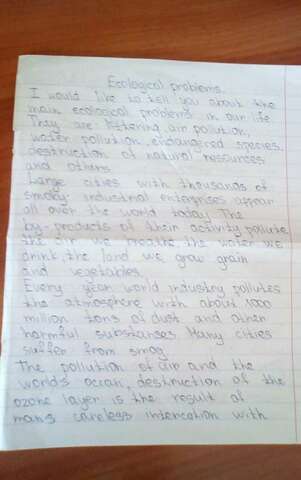 Ecological problems.
I would like to tell you about the
main ecological problems in our life
They are littering, air pollution,
water pollution, endangered species
destruction of natural resources
and others.
Large cities with thousands of
smoky industrial enterprises appear
all over the world today. The
by-products of their activity pollute
the air we breathe the water we
drink, the land we grow grain
and vegetables.
Every year world industry pollutes
the atmosphere with about 1000
million tons of dust and other
harmful substanses. Many cities
suffer from smog.
The pollution of air and the
world's ocean, destruction of the
ozone layer is the result of
man's careless interaction with